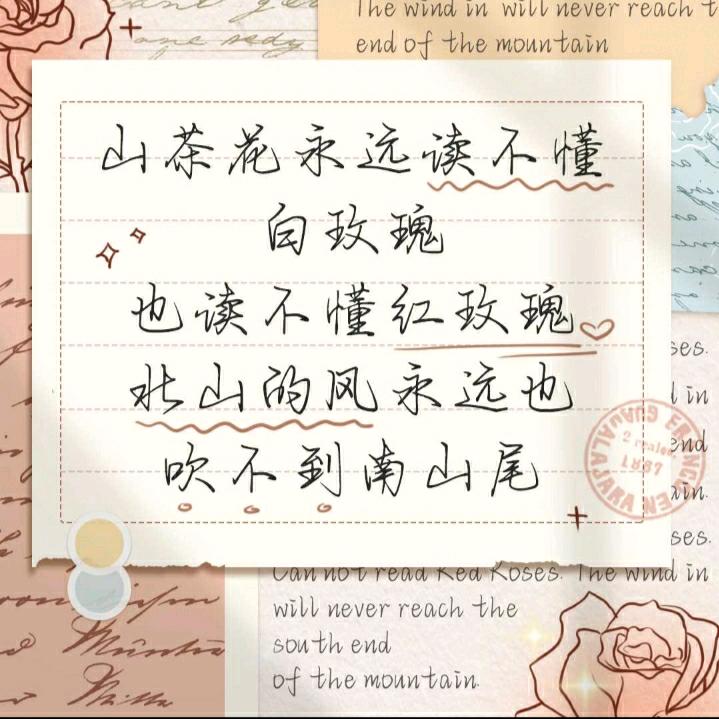 The wind in will never reach t
end of the mountain
山茶花永远读不懂
白玫瑰
也读不懂红玫瑰
北山的风永远也
吹不到南山尾
ses.
d in
end
ain.
ses.
Can not read Red Roses. The wind in
will never reach the
south end
of the mountain.
GUADALAJARA
1867